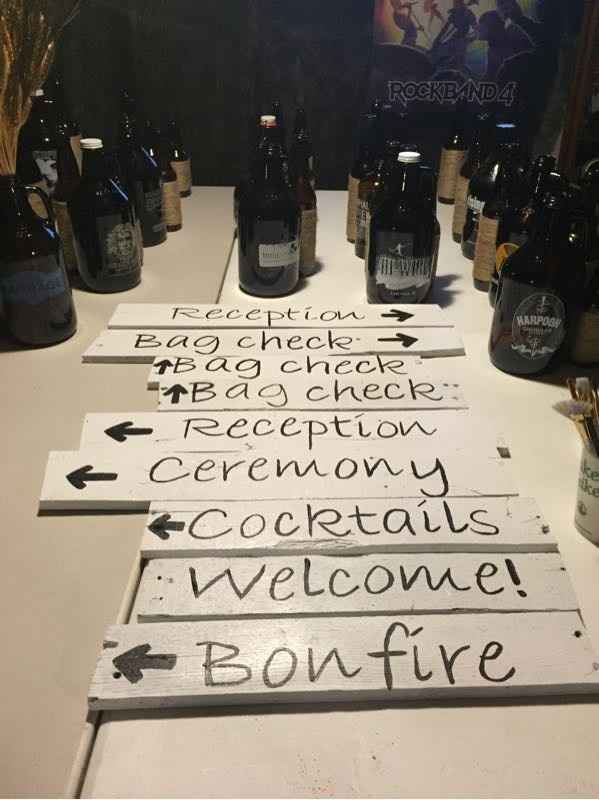 ROCKBAND 4
HARPOON
Reception →
Bag check →
↑ Bag check
↑ Bag check
← Reception
← Ceremony
← Cocktails
Welcome!
← Bonfire